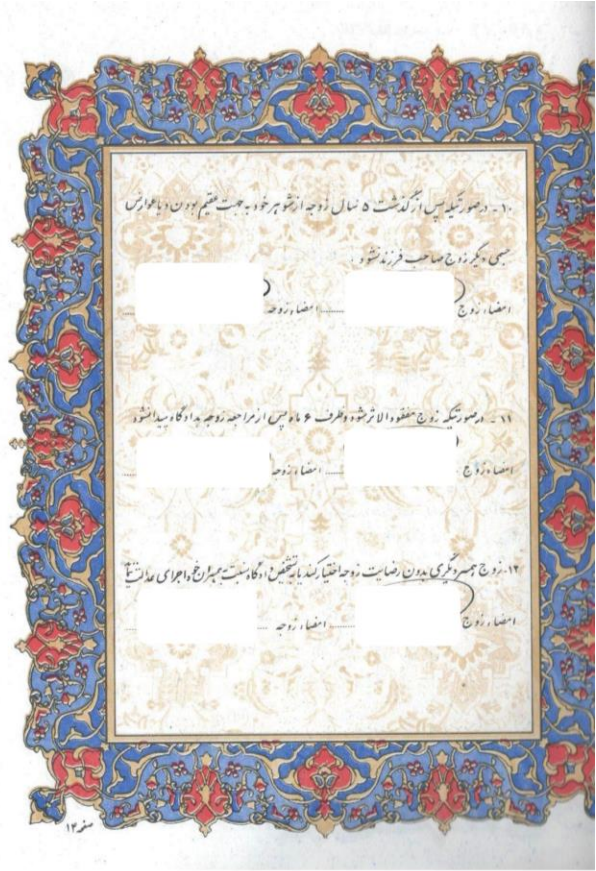 ۱۰ - درصورتیکه پس از گذشت ۵ سال زوجه از شوهر خود به جهت عقیم بودن و یا عوارض
جسمی دیگر زوج صاحب فرزند نشود .
امضاء زوج ........ امضاء زوجه ........
۱۱ - درصورتیکه زوج مفقودالاثر شود و ظرف ۶ ماه پس از مراجعه زوجه بدادگاه پیدا نشود
امضاء زوج ........ امضاء زوجه ........
۱۲ - زوج همسر دیگری بدون رضایت زوجه اختیار کند یا به تشخیص دادگاه نسبت به همسران خود اجرای عدالت ننماید
امضاء زوج ........ امضاء زوجه ........
صفحه ۱۲